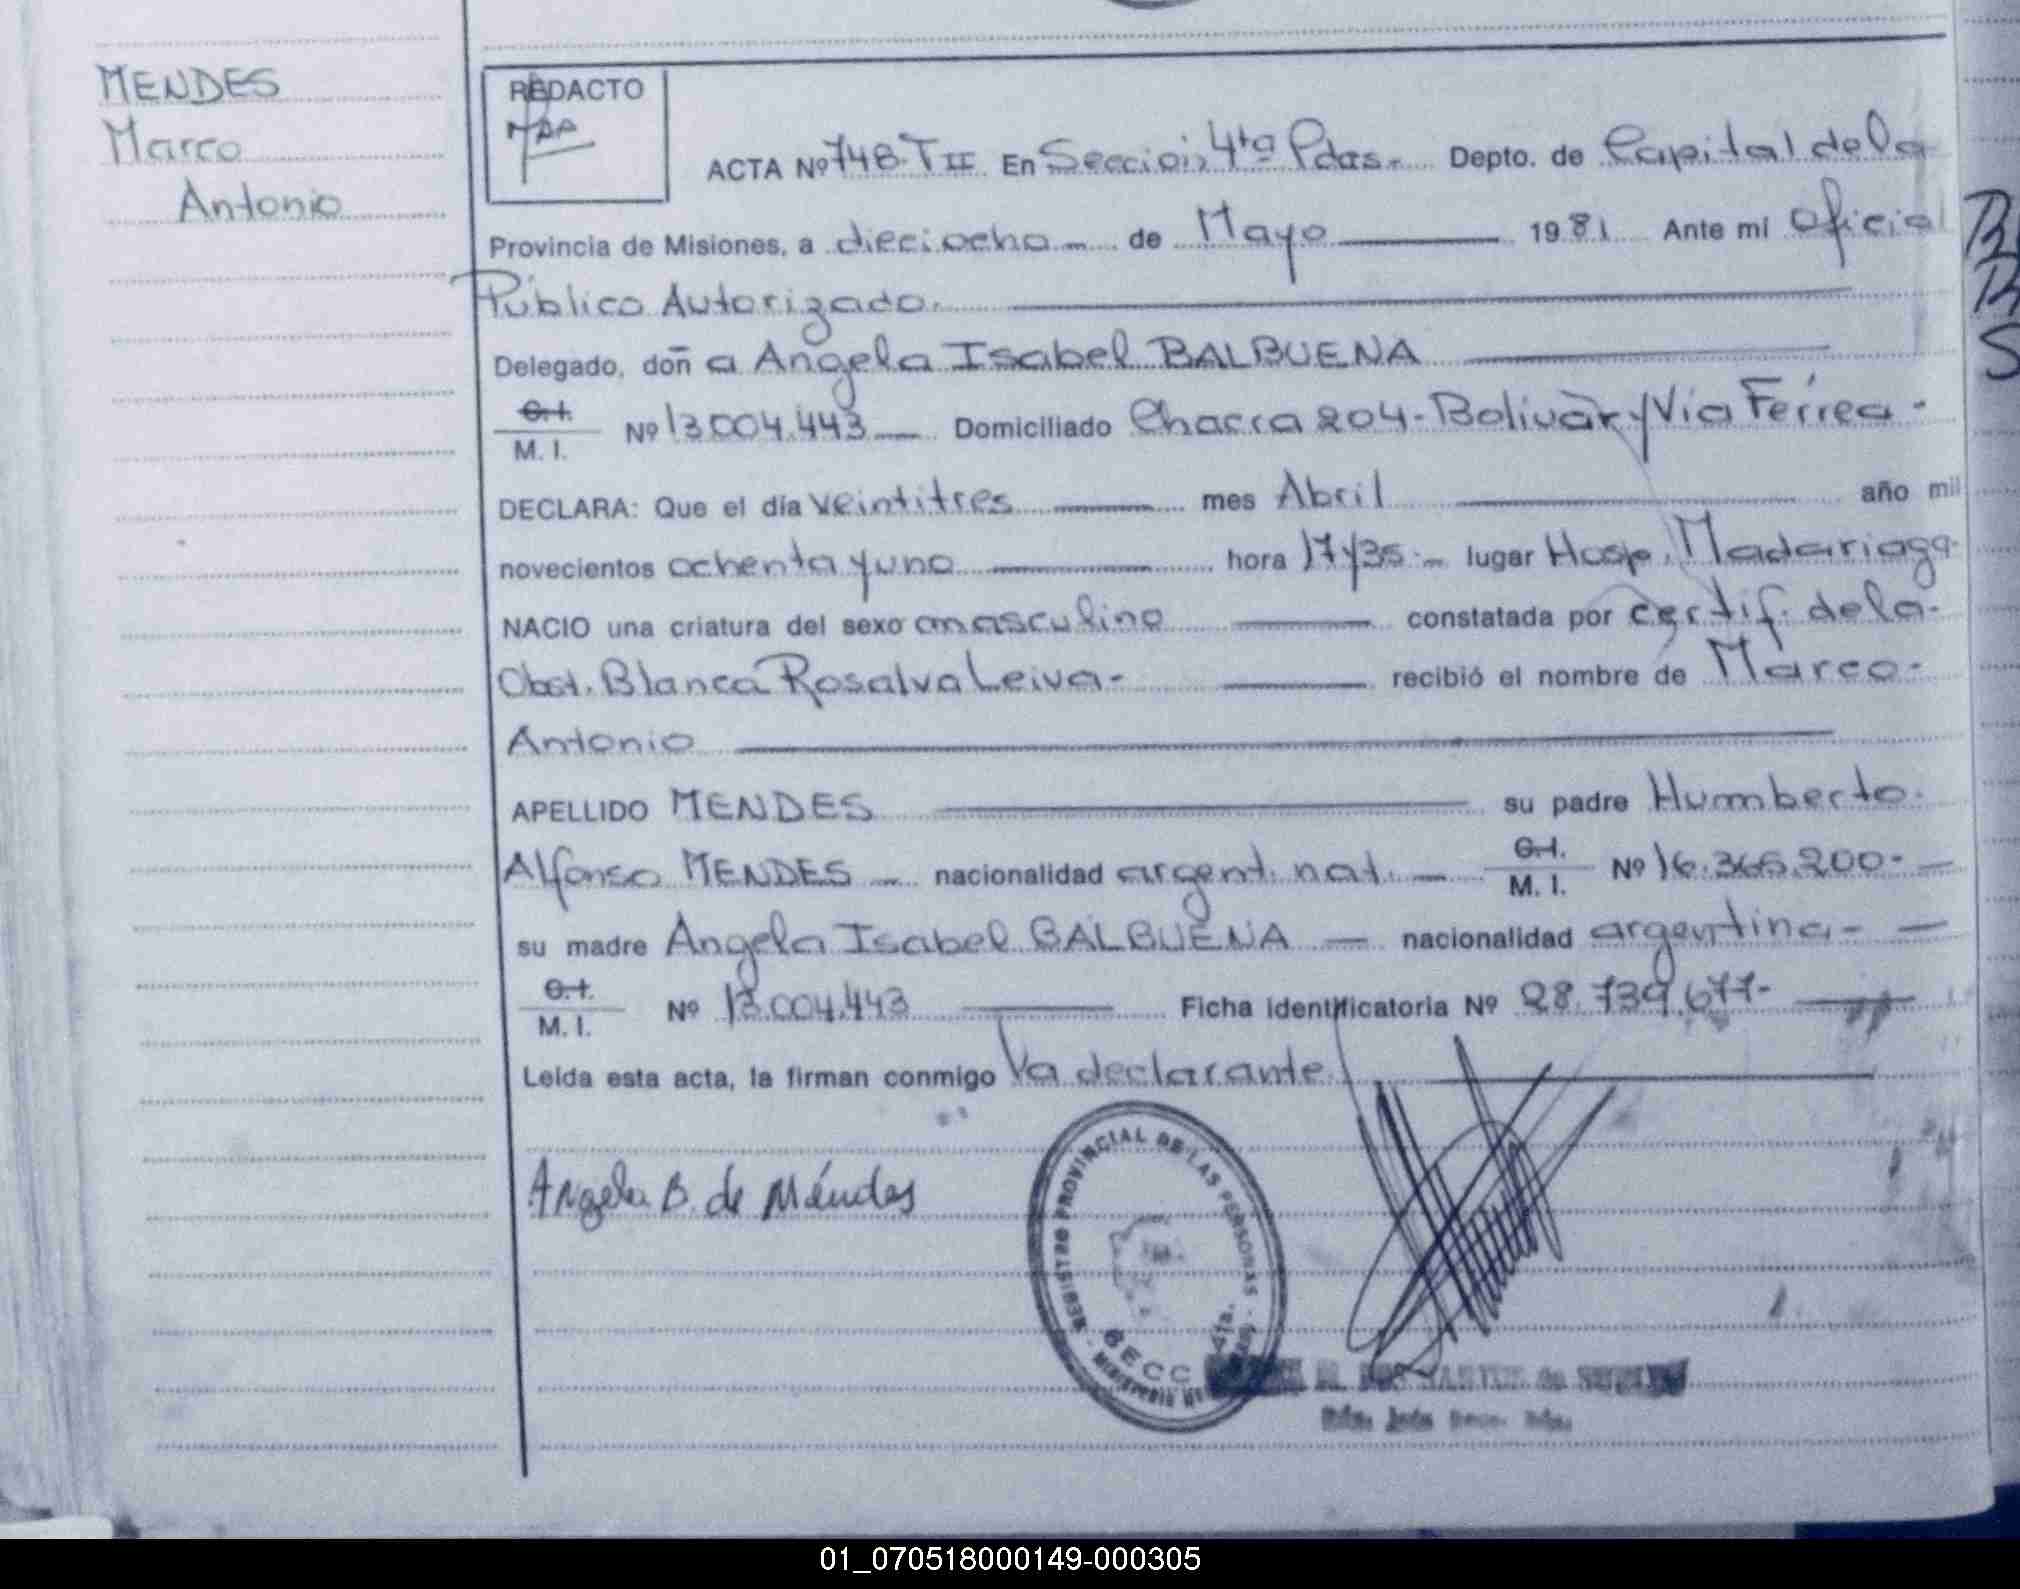 MENDES
Marco
Antonio
REDACTO
ACTA Nº 748 T II En Sección 4ta Pdas.- Depto. de Capital de la
Provincia de Misiones, a dieciocho - de Mayo 1981 Ante mi Oficial
Público Autorizado.
Delegado, doñ a Angela Isabel BALBUENA
C.I.
M. I. Nº 13.004.443 Domiciliado Chacra 204-Bolivar y Via Férrea-
DECLARA: Que el día veintitres mes Abril año mil
novecientos ochenta y uno hora 17 y 35.- lugar Hosp. Madariaga-
NACIO una criatura del sexo masculino constatada por certif. de la-
Obst. Blanca Rosalva Leiva- recibió el nombre de Marco-
Antonio
APELLIDO MENDES su padre Humberto
Alfonso MENDES - nacionalidad argent. nat. - C.I.
M. I. Nº 16.365.200-
su madre Angela Isabel BALBUENA - nacionalidad argentina- -
C.I.
M. I. Nº 13.004.443 Ficha identificatoria Nº 28.739.677-
Leida esta acta, la firman conmigo la declarante.
Angela B. de Méndes
REGISTRO PROVINCIAL DE LAS PERSONAS
SECC 4ta.
01_070518000149-000305